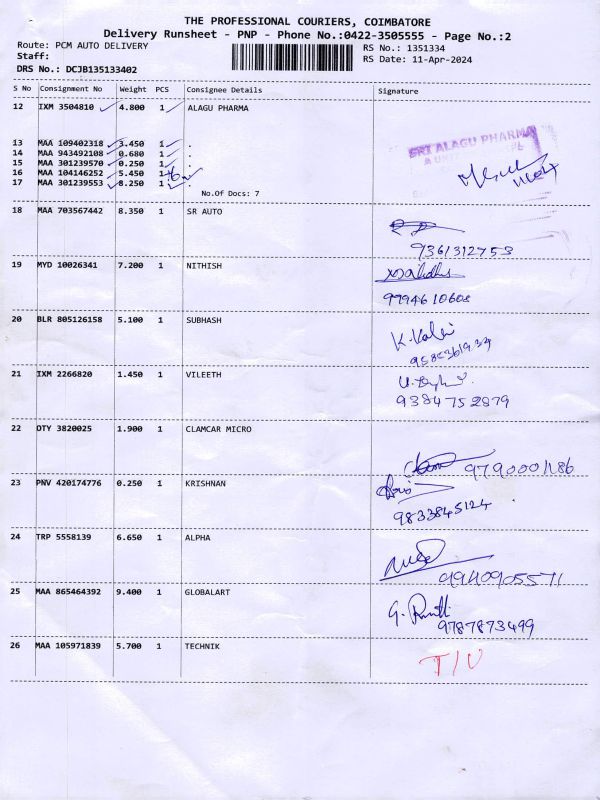 THE PROFESSIONAL COURIERS, COIMBATORE
Delivery Runsheet - PNP - Phone No.:0422-3505555 - Page No.:2
Route: PCM AUTO DELIVERY
RS No.: 1351334
Staff:
RS Date: 11-Apr-2024
DRS No.: DCJB135133402
S No Consignment No Weight PCS Consignee Details Signature
12 IXM 3504810 4.800 1 ALAGU PHARMA
13 MAA 109402318 3.450 1 .
14 MAA 943492108 0.680 1 .
15 MAA 301239570 0.250 1 .
16 MAA 104146252 5.450 1 .
17 MAA 301239553 8.250 1 .
SRI ALAGU PHARMA
No.Of Docs: 7
18 MAA 703567442 8.350 1 SR AUTO
9361312753
19 MYD 10026341 7.200 1 NITHISH
9794610608
20 BLR 805126158 5.100 1 SUBHASH
K. Kalai
9585361934
21 IXM 2266820 1.450 1 VILEETH
9384752879
22 OTY 3820025 1.900 1 CLAMCAR MICRO
9790001186
23 PNV 420174776 0.250 1 KRISHNAN
9833845124
24 TRP 5558139 6.650 1 ALPHA
9940905571
25 MAA 865464392 9.400 1 GLOBALART
9787873499
26 MAA 105971839 5.700 1 TECHNIK
T/U